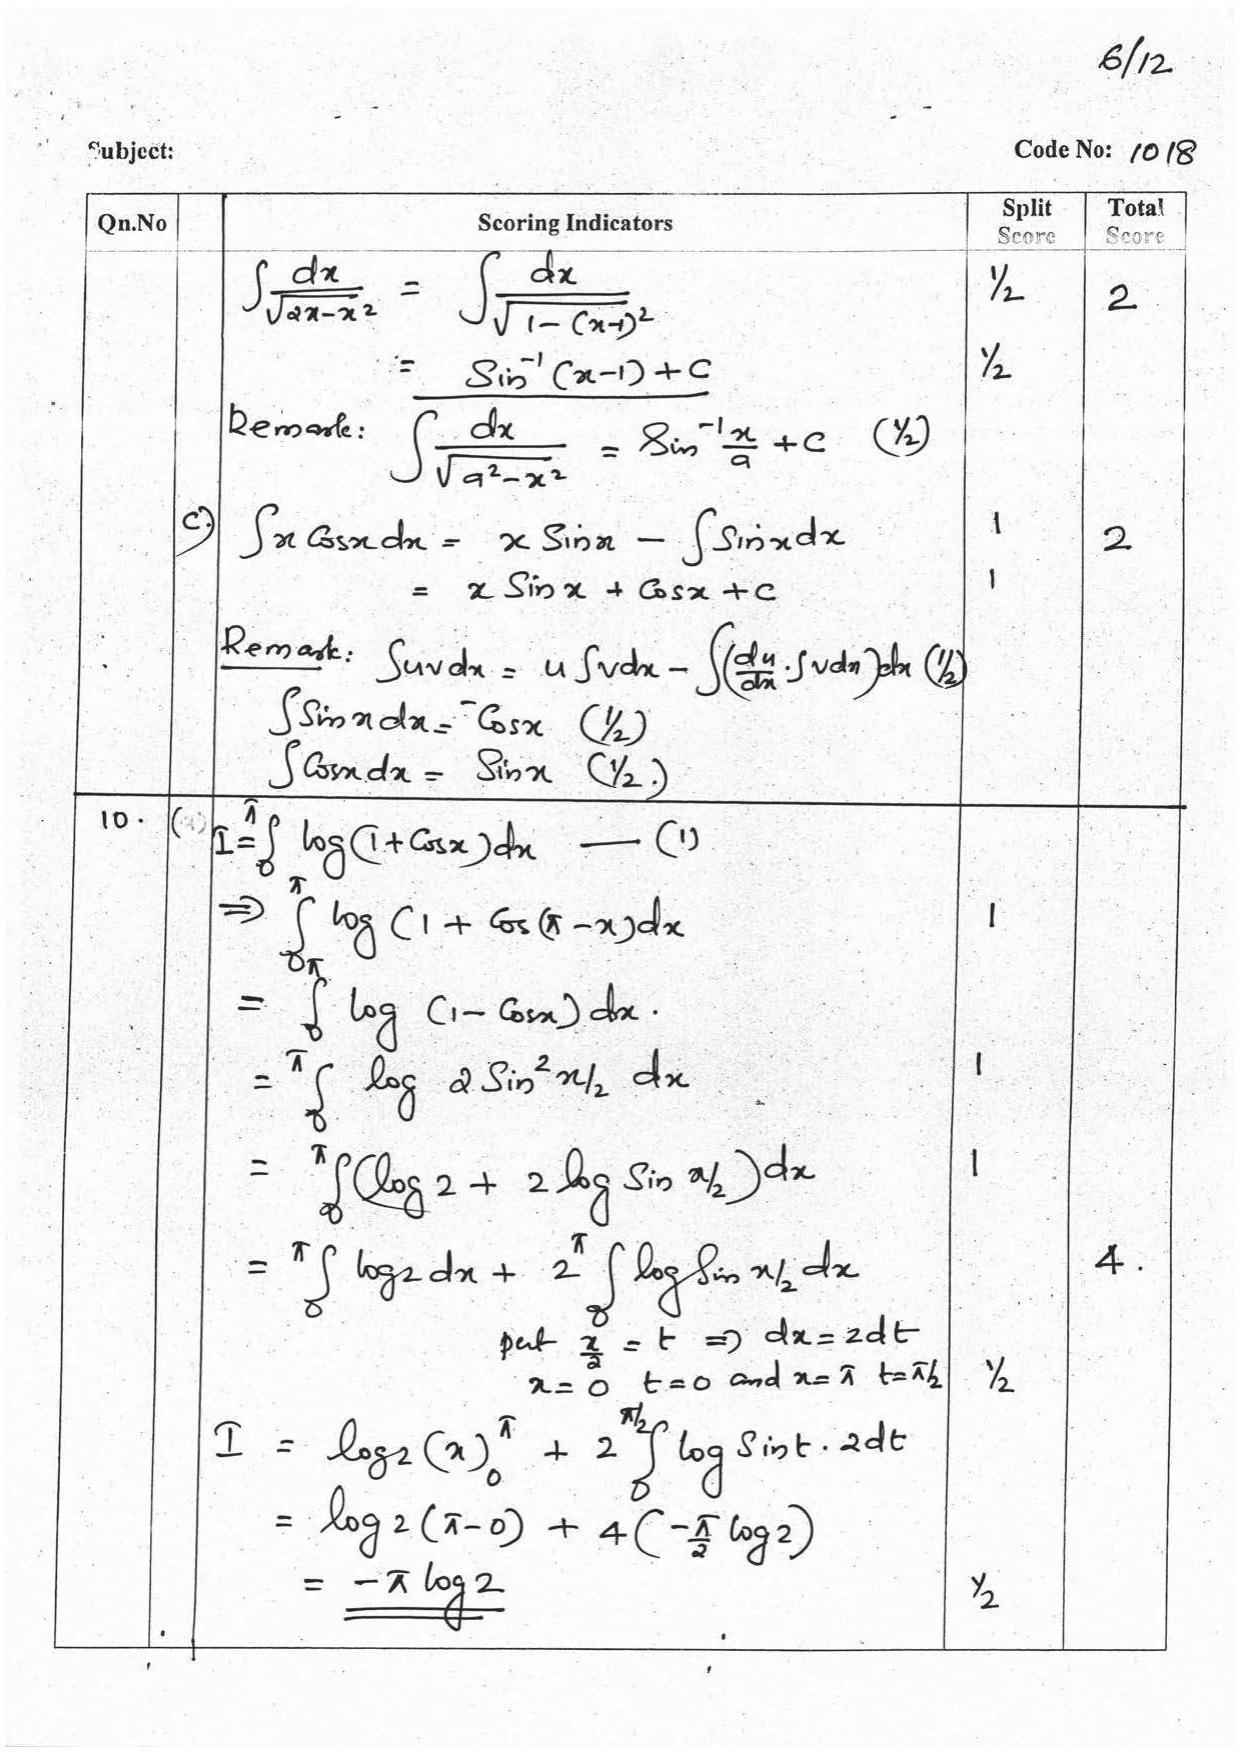 6/12
Subject: Code No: 1018
Qn.No Scoring Indicators Split Score Total Score
∫ dx/√(2x-x²) = ∫ dx/√(1-(x-1)²) ½ 2
= Sin⁻¹(x-1)+C ½
Remark: ∫ dx/√(a²-x²) = Sin⁻¹ x/a + C (½)
c) ∫x Cosx dx = x Sinx - ∫Sinx dx 1 2
= x Sinx + Cosx + C 1
Remark: ∫uvdx = u∫vdx - ∫(du/dx . ∫vdx)dx (½)
∫Sinx dx = -Cosx (½)
∫Cosx dx = Sinx (½.)
10. (a) I = ∫₀^π log(1+Cosx)dx — (1)
⇒ ∫₀^π log(1 + Cos(π-x)dx 1
= ∫₀^π log (1-Cosx)dx.
= ∫₀^π log 2Sin²x/2 dx 1
= ∫₀^π (log2 + 2 log Sin x/2)dx 1
= ∫₀^π log2 dx + 2 ∫₀^π log Sin x/2 dx 4.
put x/2 = t ⇒ dx = 2dt
x=0 t=0 and x=π t=π/2 ½
I = log2 (x)₀^π + 2 ∫₀^π/2 log Sint . 2dt
= log2(π-0) + 4(-π/2 log2)
= -π log2 ½